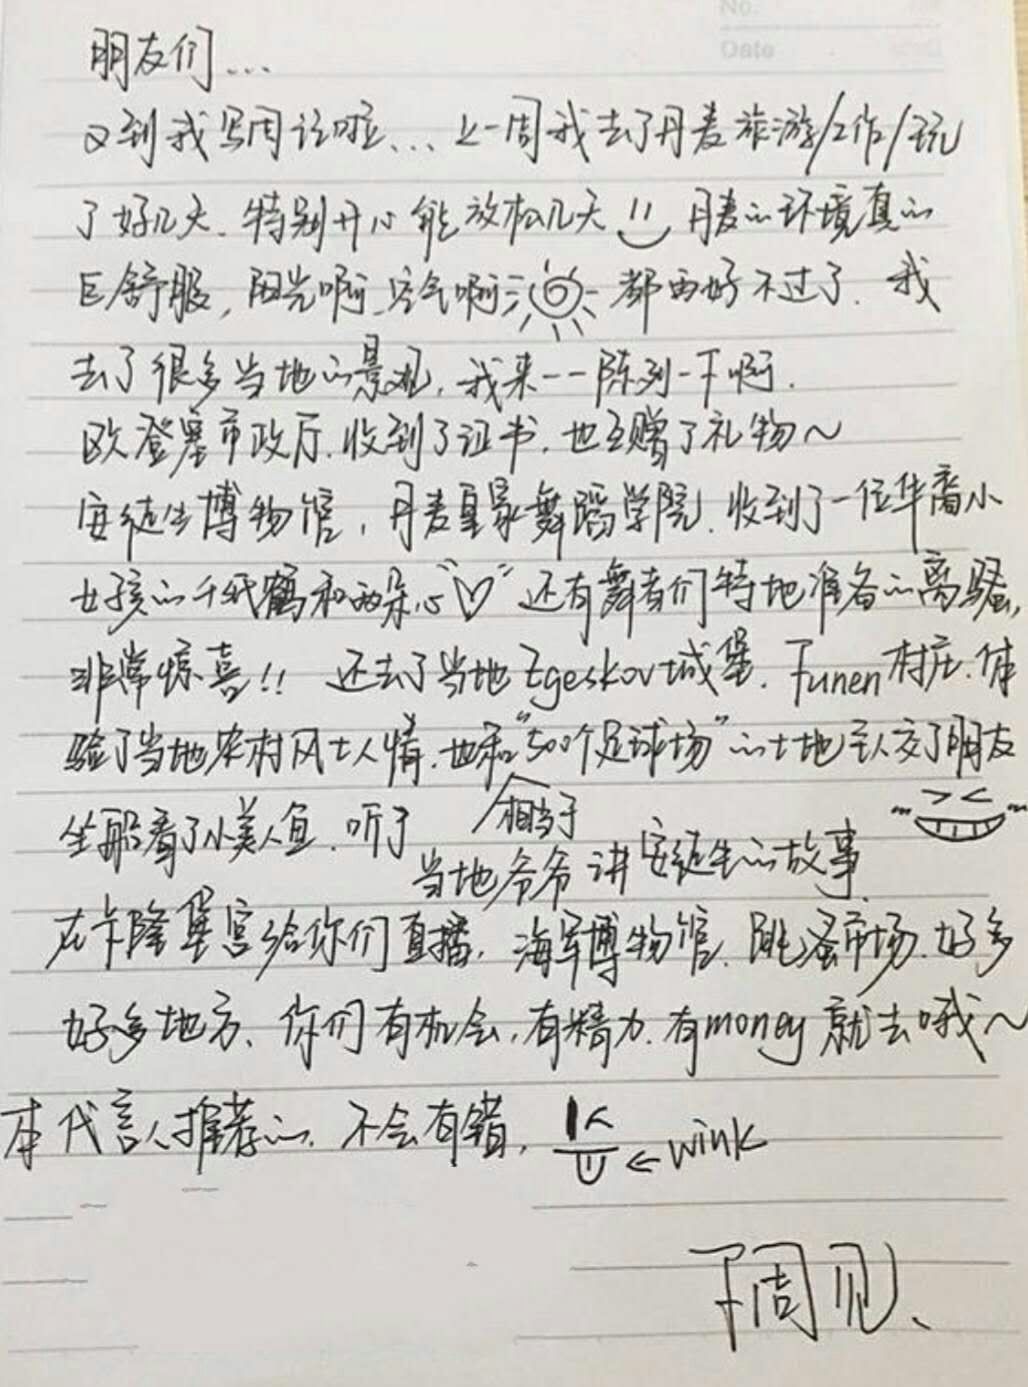 No.
Date
朋友们...
又到我写周记啦... 上一周我去了丹麦旅游/工作/玩
了好几天、特别开心能放松几天 丹麦的环境真的
巨舒服,阳光啊、空气啊 都再好不过了、我
去了很多当地的景观,我来一一陈列一下啊.
欧登塞市政厅.收到了证书.也互赠了礼物~
安徒生博物馆,丹麦皇家舞蹈学院.收到了一位华裔小
女孩的千纸鹤和两朵心“♡”还有舞者们特地准备的离骚,
非常惊喜!! 还去了当地Egeskov城堡.Funen村庄.体
验了当地农村风土人情.也和“500个足球场”的土地主人交了朋友
相当于
坐船看了小美人鱼.听了当地爷爷讲安徒生的故事.
在卡隆堡宫给你们直播,海军博物馆、跳蚤市场.好多
好多地方、你们有机会,有精力.有money就去哦~
本代言人推荐的、不会有错, ←wink
下周见、